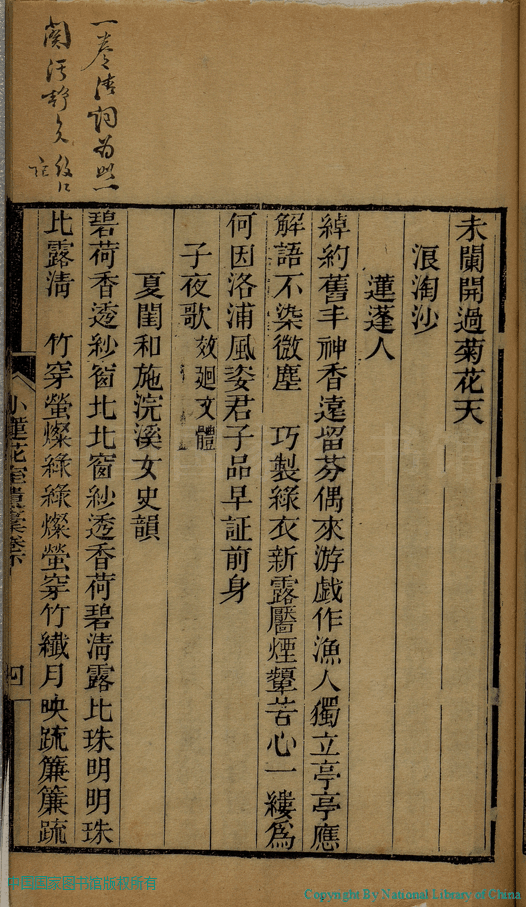 未闌開過菊花天
浪淘沙
蓮蓬人
綽約舊丰神香遠留芬偶來游戲作漁人獨立亭亭應
解語不染微塵　巧製綠衣新露靨煙顰苦心一縷爲
何因洛浦風姿君子品早証前身
子夜歌效廻文體
夏閨和施浣溪女史韻
碧荷香透紗窗北北窗紗透香荷碧淸露比珠明明珠
比露淸　竹穿螢燦綠綠燦螢穿竹纖月映疏簾簾疏
小蓮花室遺稾卷下
四
一卷淸詞
中国国家图书馆版权所有
Copyright By National Library of China